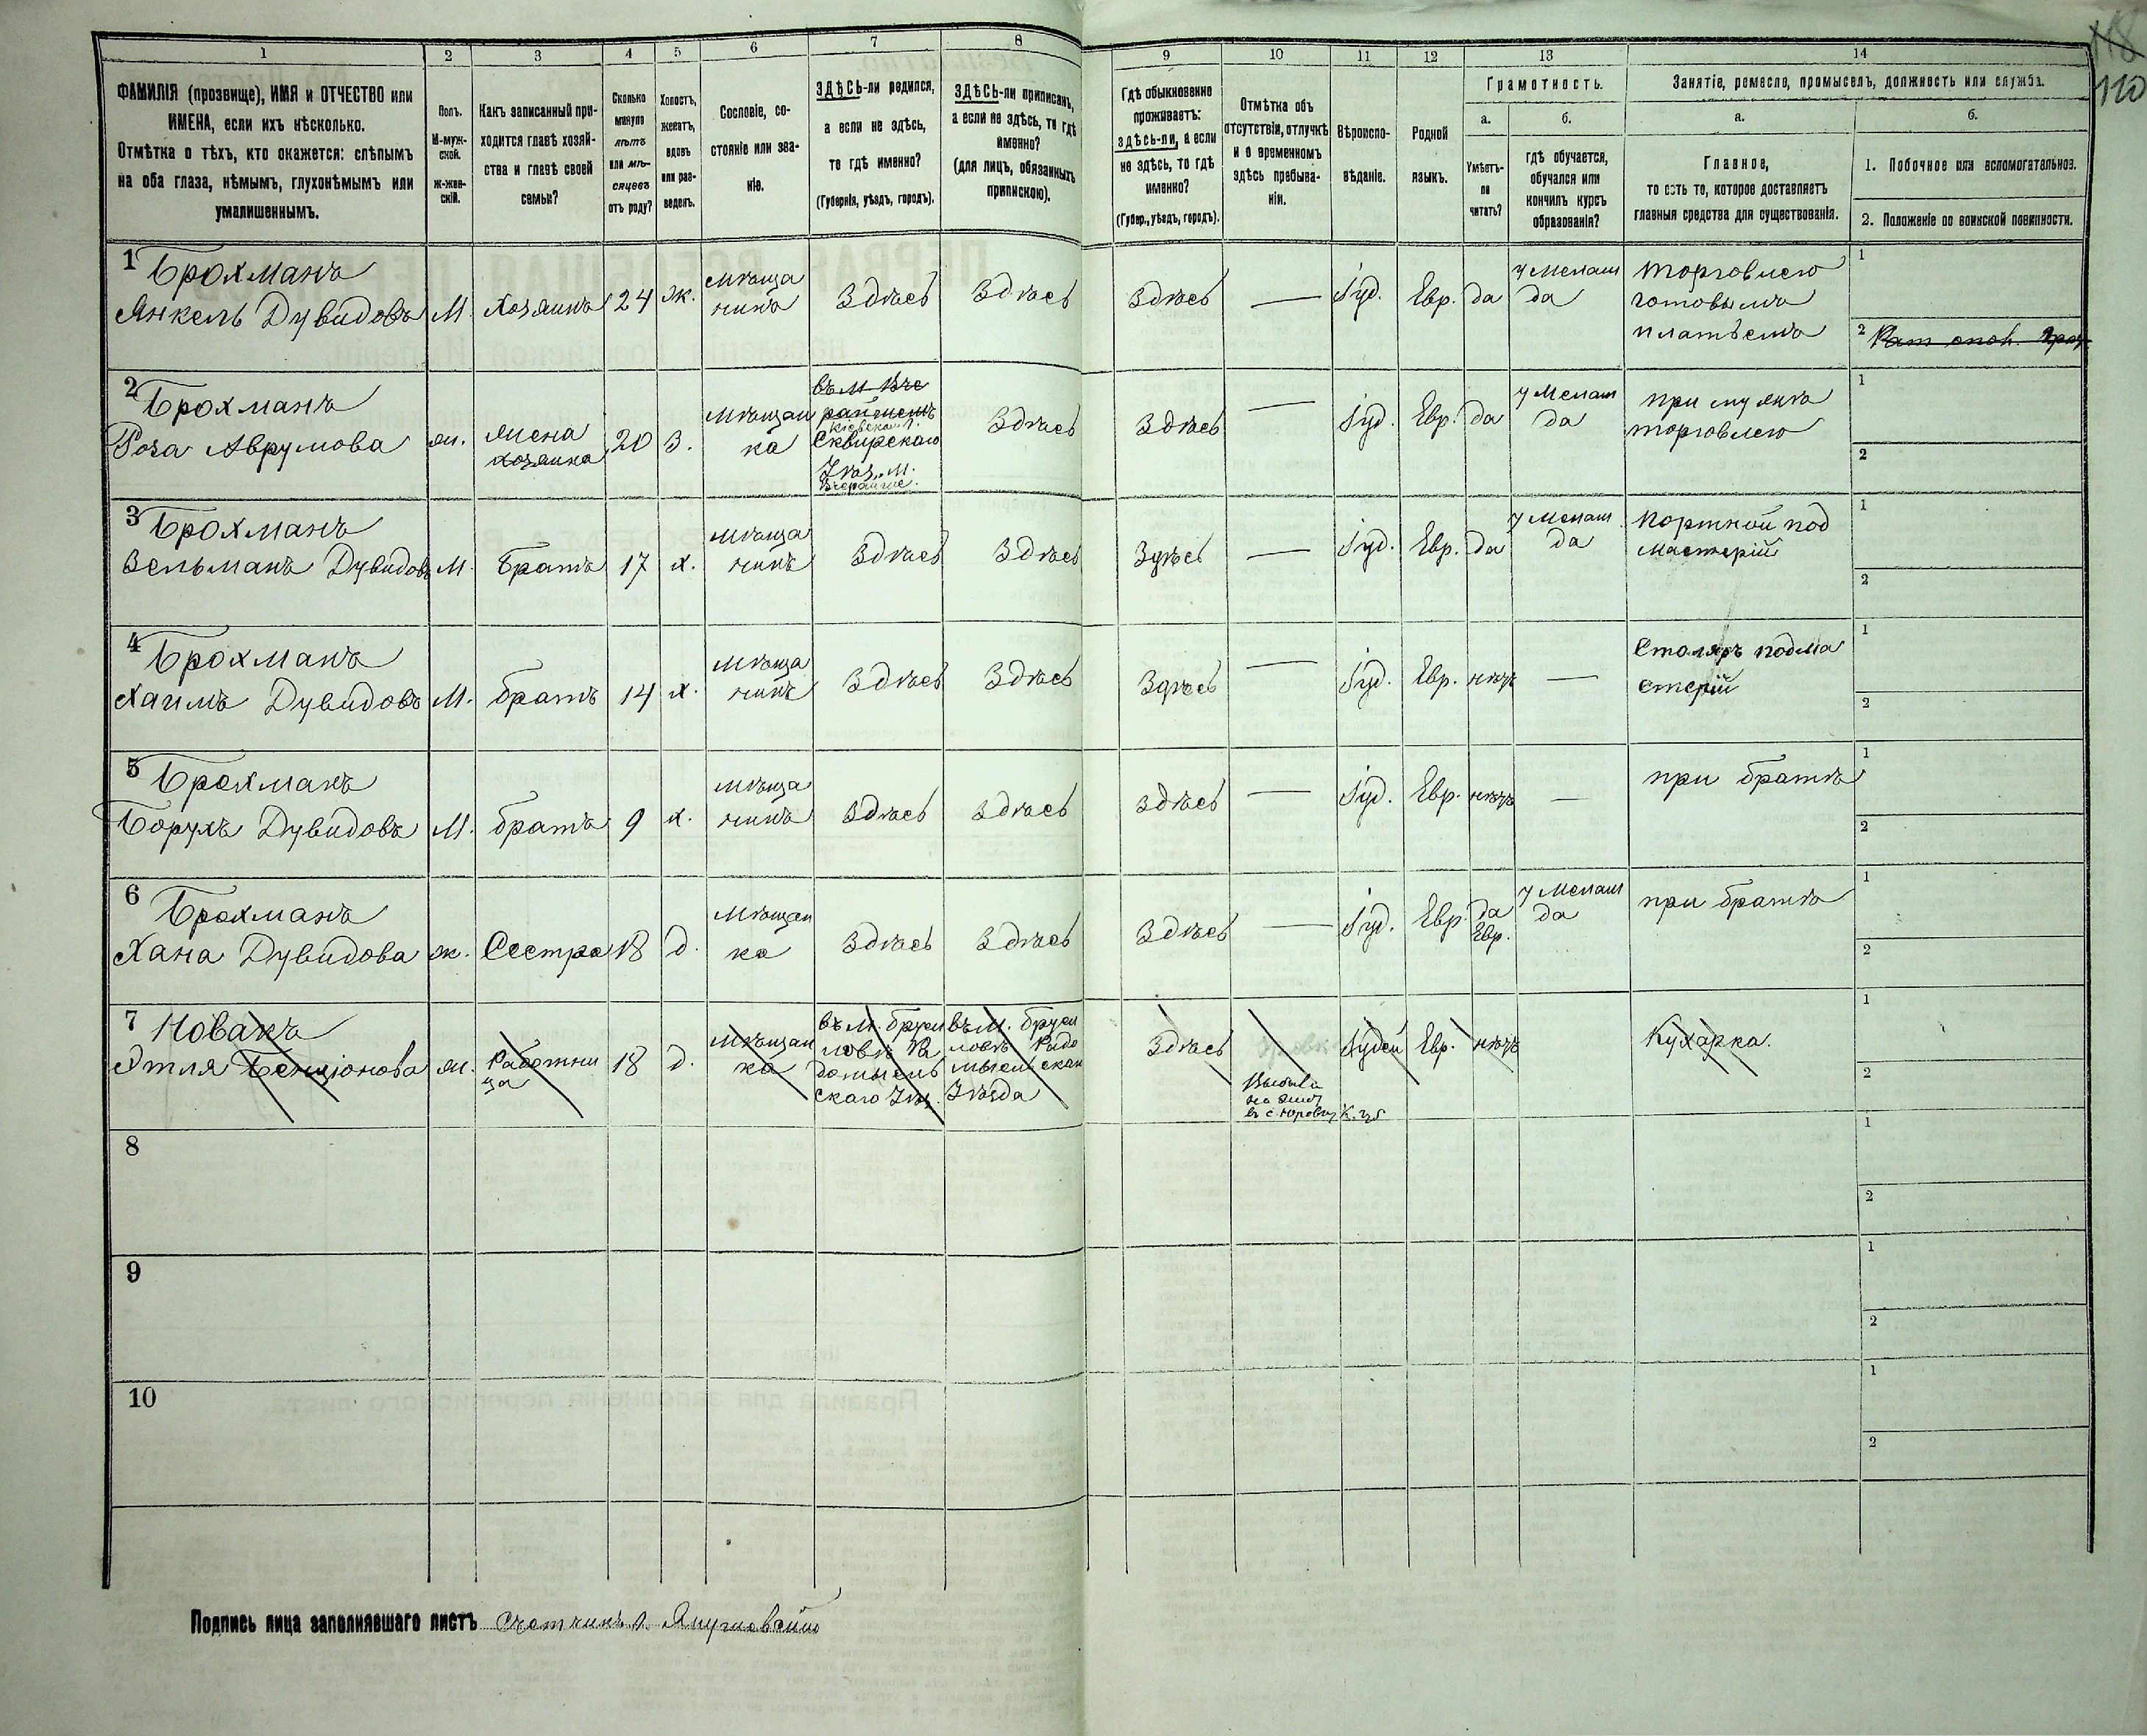 118
120
1 2 3 4 5 6 7 8 9 10 11 12 13 14
ФАМИЛІЯ (прозвище), ИМЯ и ОТЧЕСТВО или
ИМЕНА, если ихъ нѣсколько.
Отмѣтка о тѣхъ, кто окажется: слѣпымъ
на оба глаза, нѣмымъ, глухонѣмымъ или
умалишеннымъ.
Полъ.
М-муж-
ской.
ж-жен-
скій.
Какъ записанный при-
ходится главѣ хозяй-
ства и главѣ своей
семьи?
Сколько
минуло
лѣтъ
или мѣ-
сяцевъ
отъ роду?
Холостъ,
женатъ,
вдовъ
или раз-
веденъ.
Сословіе, со-
стояніе или зва-
ніе.
ЗДѢСЬ-ли родился,
а если не здѣсь,
то гдѣ именно?
(Губернія, уѣздъ, городъ).
ЗДѢСЬ-ли приписанъ,
а если не здѣсь, то гдѣ
именно?
(для лицъ, обязанныхъ
припискою).
Гдѣ обыкновенно
проживаетъ:
здѣсь-ли, а если
не здѣсь, то гдѣ
именно?
(Губер., уѣздъ, городъ).
Отмѣтка объ
отсутствіи, отлучкѣ
и о временномъ
здѣсь пребыва-
ніи.
Вѣроиспо-
вѣданіе.
Родной
языкъ.
Грамотность.
а.
Умѣетъ-
ли
читать?
б.
гдѣ обучается,
обучался или
кончилъ курсъ
образованія?
Занятіе, ремесло, промыселъ, должность или служба.
а.
Главное,
то есть то, которое доставляетъ
главныя средства для существованія.
б.
1. Побочное или вспомогательное.
2. Положеніе по воинской повинности.
1 Брохманъ
Янкель Дувидовъ М. Хозяинъ 24 ж. Мѣща
нинъ Здѣсь Здѣсь Здѣсь — Іуд. Евр. да у Мелам
да торговлею
готовымъ
платьемъ
1
2
2 Брохманъ
Роза Аврумова ж. жена
хозяина 20 З. Мѣщан
ка въ М. Вче
райшемъ
Кіевской г.
Сквирскаго
Уѣз. М.
Вчерайше.
Здѣсь Здѣсь — Іуд. Евр. да у Мелам
да при мужѣ
торговлею
1
2
3 Брохманъ
Зельманъ Дувидовъ М. Братъ 17 х. Мѣща
нинъ Здѣсь Здѣсь Здѣсь — Іуд. Евр. да у Мелам
да Портной под
мастерій
1
2
4 Брохманъ
Хаимъ Дувидовъ М. братъ 14 х. Мѣща
нинъ Здѣсь Здѣсь Здѣсь — Іуд. Евр. нѣтъ — Столяръ подма
стерій
1
2
5 Брохманъ
Борухъ Дувидовъ М. братъ 9 х. Мѣща
нинъ Здѣсь Здѣсь Здѣсь — Іуд. Евр. нѣтъ — при братѣ
1
2
6 Брохманъ
Хана Дувидова ж. Сестра 18 д. Мѣщан
ка Здѣсь Здѣсь Здѣсь — Іуд. Евр. да
Евр. у Мелам
да при братѣ
1
2
7 Новакъ
Этля Бенціонова ж. Работни
ца 18 д. Мѣщан
ка въ М. Бруси
ловѣ Ра
домысль
скаго Уѣз.
въ М. Бруси
ловѣ Радо
мысльскаго
Уѣзда
Здѣсь Іудей Евр. нѣтъ Кухарка.
1
2
8
1
2
9
1
2
10
1
2
Подпись лица заполнявшаго листъ Счетчикъ